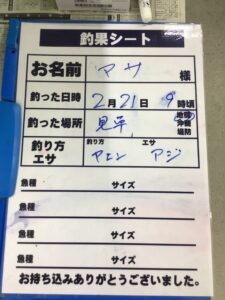 釣果シート
お名前 マサ 様
釣った日時 2月21日 9時頃
釣った場所 見草 地磯 沖磯 堤防
釣り方 エサ 釣り方 エサ アジ
魚種 サイズ
魚種 サイズ
魚種 サイズ
魚種 サイズ
お持ち込みありがとうございました。